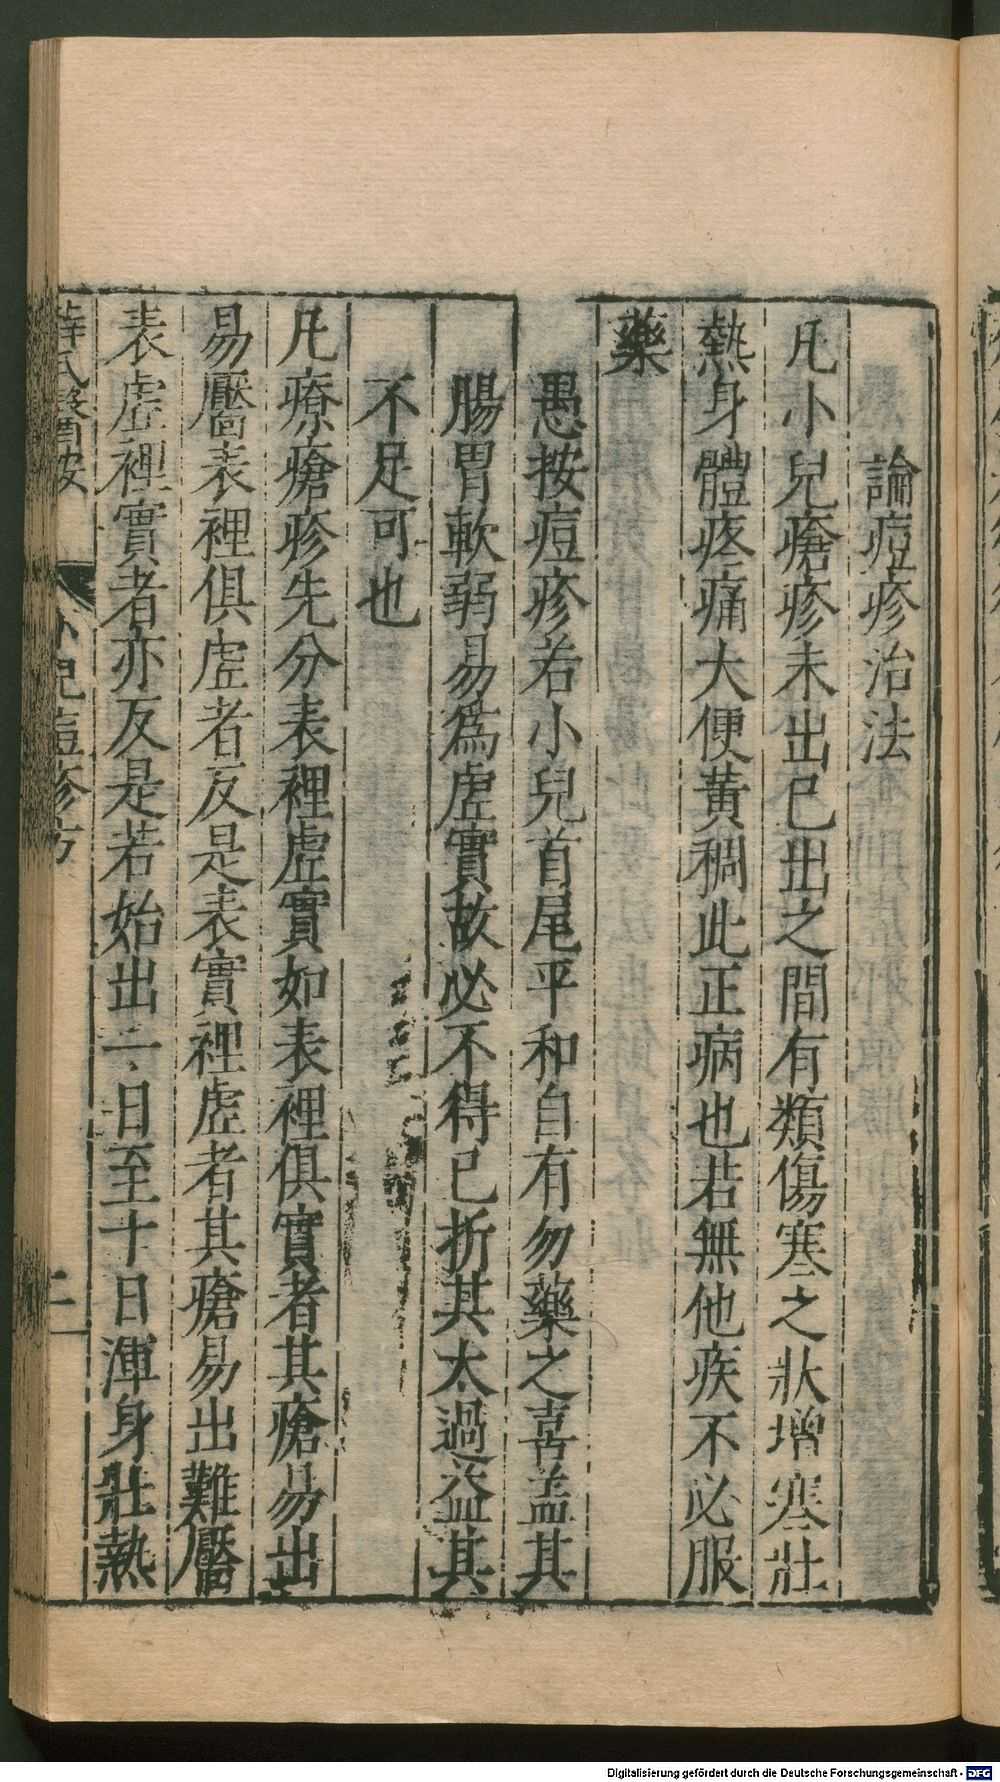 論痘疹治法
凡小兒瘡疹未出已出之間有類傷寒之狀增寒壯
熱身體疼痛大便黃稠此正病也若無他疾不必服
藥
愚按痘疹若小兒首尾平和自有勿藥之喜盖其
腸胃軟弱易為虛實故必不得已折其太過益其
不足可也
凡療瘡疹先分表裡虛實如表裡俱實者其瘡易出
易靨表裡俱虛者反是表實裡虛者其瘡易出難靨
表虛裡實者亦反是若始出一日至十日渾身壯熱
薛氏醫按 小兒痘疹方
Digitalisierung gefördert durch die Deutsche Forschungsgemeinschaft - DFG